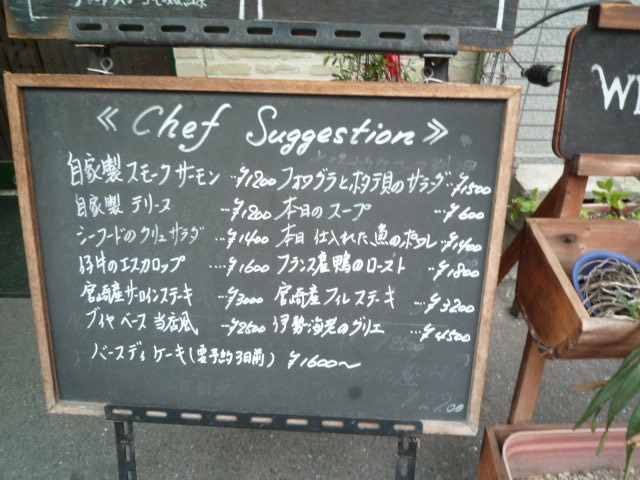 ≪ Chef Suggestion ≫
自家製 スモークサーモン …¥1200 フォワグラとホタテ貝のサラダ…¥1500
自家製 テリーヌ …¥1200 本日のスープ …¥600
シーフードのクリュサラダ …¥1400 本日仕入れた魚のポワレ…¥1400
仔牛のエスカロップ …¥1600 フランス産鴨のロースト …¥1800
宮崎産サーロインステーキ …¥3000 宮崎産フィレステーキ …¥3200
ブイヤベース当店風 …¥2500 伊勢海老のグリエ …¥4500
バースディケーキ(要予約3日前) ¥1600〜